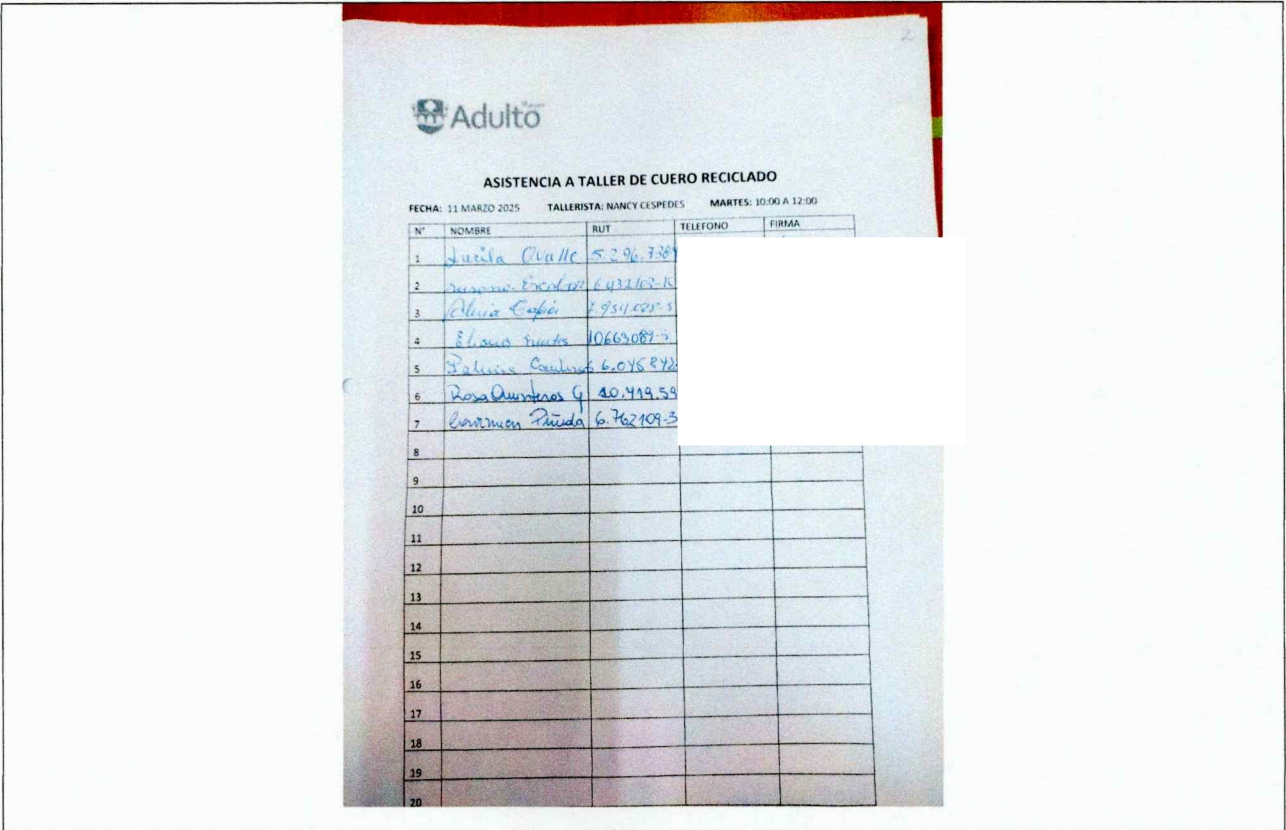 2
Adulto
ASISTENCIA A TALLER DE CUERO RECICLADO
FECHA: 11 MARZO 2025 TALLERISTA: NANCY CESPEDES MARTES: 10:00 A 12:00
N° NOMBRE RUT TELEFONO FIRMA
1 Lucila Ovalle 5.296.738
2 Escobar 6432102-K
3 Alicia Tapia 7.954.025-5
4 Eliana 10663089-
5 Patricia 6.045842
6 Rosa Quinteros G 10.419.59
7 Carmen Pineda 6.762109-3
8
9
10
11
12
13
14
15
16
17
18
19
20